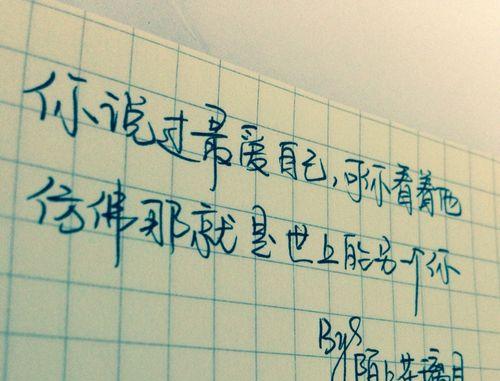 你说过最爱自己,可你看着他
仿佛那就是世上的另一个你
By
陌上花